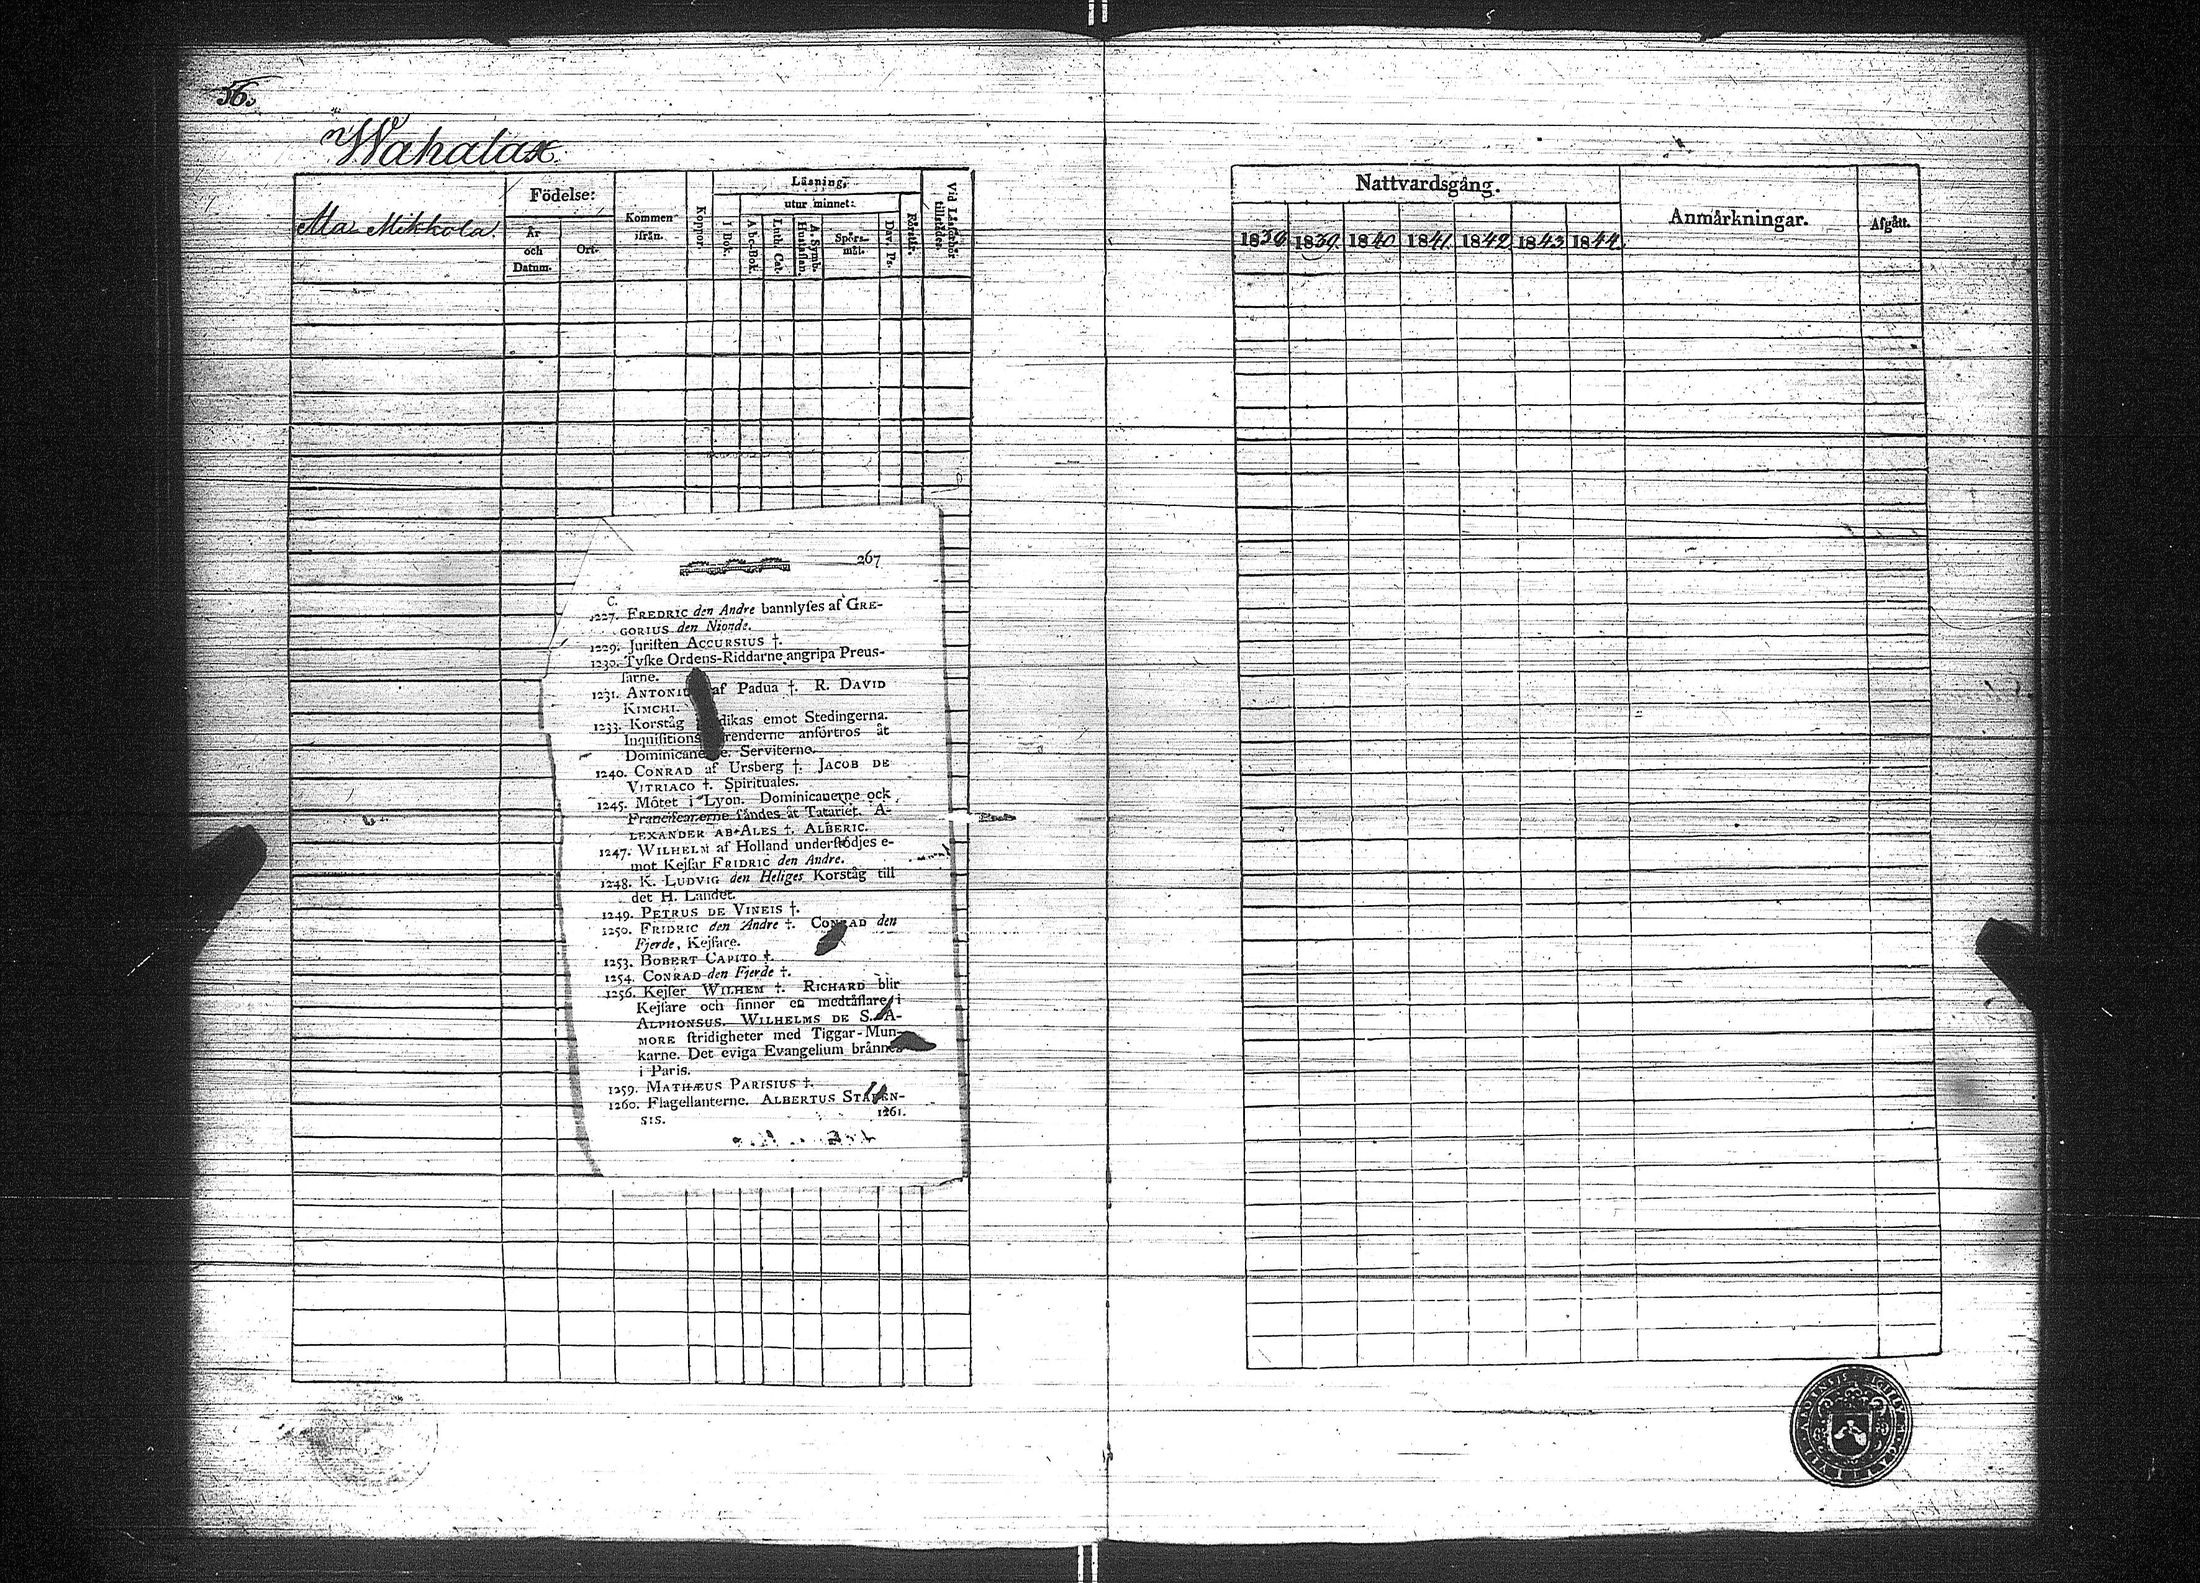 36.
Wahalax
Ala Mikkola.
Födelse:
År
och
Datum.
Ort.
Kommen
ifrån.
Koppor.
Läsning,
utur minnet:
I Bok.
Abc-Bok.
Luth. Cat.
A. Symb.
Hustaflan.
Spörs-
mål.
Dav. Ps.
Vid Läsförhör
tillstädes.
Nattvardsgång.
1839. 1840 1841. 1842 1843 1844.
Anmärkningar.
Afgått.
267
C.
1227. FREDRIC den Andre bannlyſes af GRE-
GORIUS den Nionde.
1229. Juriſten ACCURSIUS †.
1230. Tyſke Ordens-Riddarne angripa Preus-
ſarne.
1231. af Padua †. R. DAVID
KIMCHI.
1233. Korståg emot Stedingerna.
anförtros åt
Serviterne.
1240. CONRAD af Ursberg †. JACOB DE
VITRIACO †. Spirituales.
1245. Mötet i Lyon. Dominicanerne ock
Franciſcanerne ſändes åt Tatariet. A-
LEXANDER AB ALES †. ALBERIC.
1247. WILHELM af Holland underſtödjes e-
mot Kejſar FRIDRIC den Andre.
1248. K. LUDVIG den Heliges Korståg till
det H. Landet.
1249. PETRUS DE VINEIS †.
1250. FRIDRIC den Andre †. CONRAD den
Fjerde, Kejſare.
1253. BOBERT CAPITO †.
1254. CONRAD den Fjerde †.
1256. Kejſer WILHEM †. RICHARD blir
Kejſare och ſinnor en medtäflare i
ALPHONSUS. WILHELMS DE S. A-
MORE ſtridigheter med Tiggar-Mun-
karne. Det eviga Evangelium brännes
i Paris.
1259. MATHÆUS PARISIUS †.
1260. Flagellanterne. ALBERTUS STADEN-
SIS.
1261.